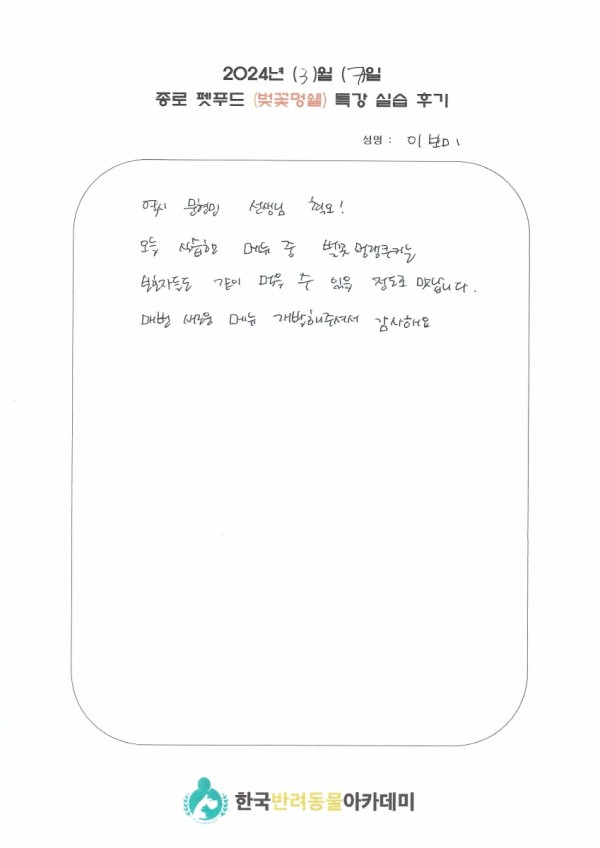 2024년 (3)월 ( )일
종로 펫푸드 (벚꽃멍쉘) 특강 실습 후기
성명 : 이보미
역시 문형민 선생님 최고!
오늘 실습한 메뉴 중 벚꽃 멍랭쿠키는
보호자들도 같이 먹을 수 있을 정도로 맛납니다.
매번 새로운 메뉴 개발해주셔서 감사해요
한국반려동물아카데미